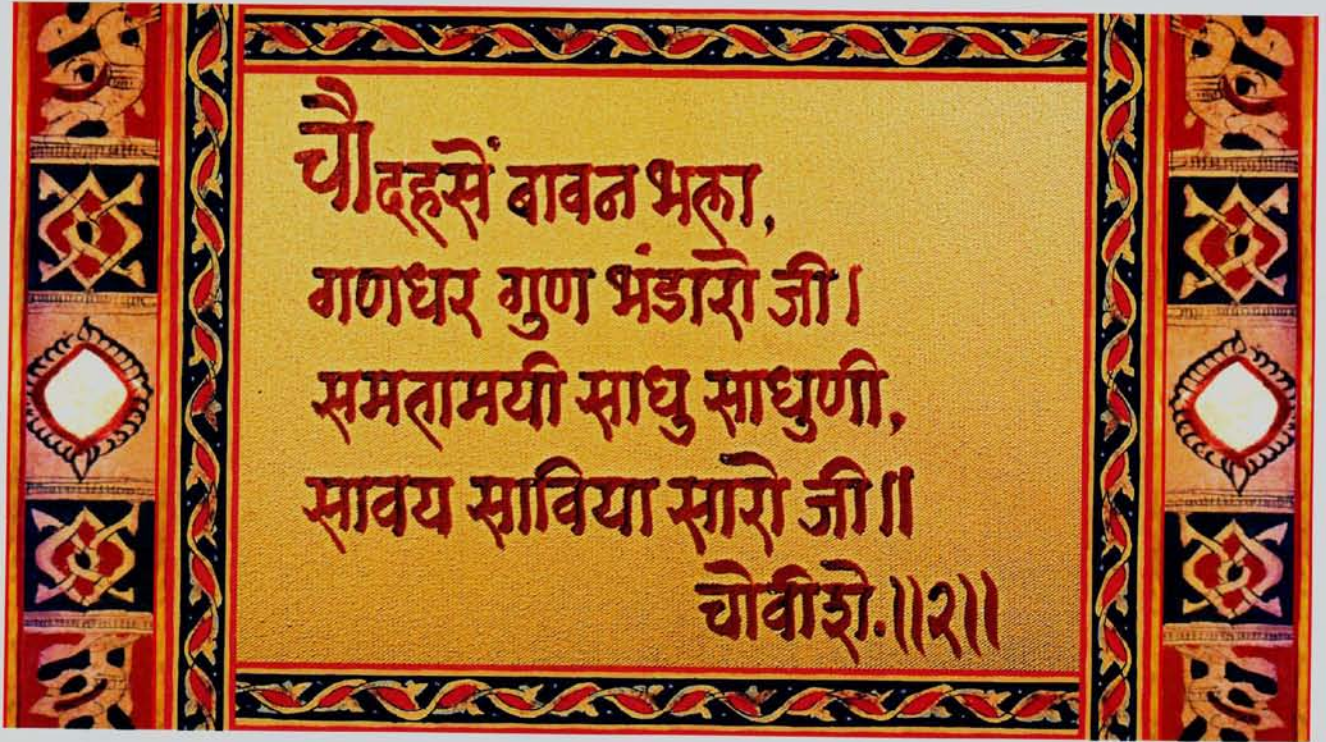 चौदहसें बावन भला,
गणधर गुण भंडारो जी।
समतामयी साधु साधुणी,
सावय साविया सारो जी॥
चोवीशे.॥२॥